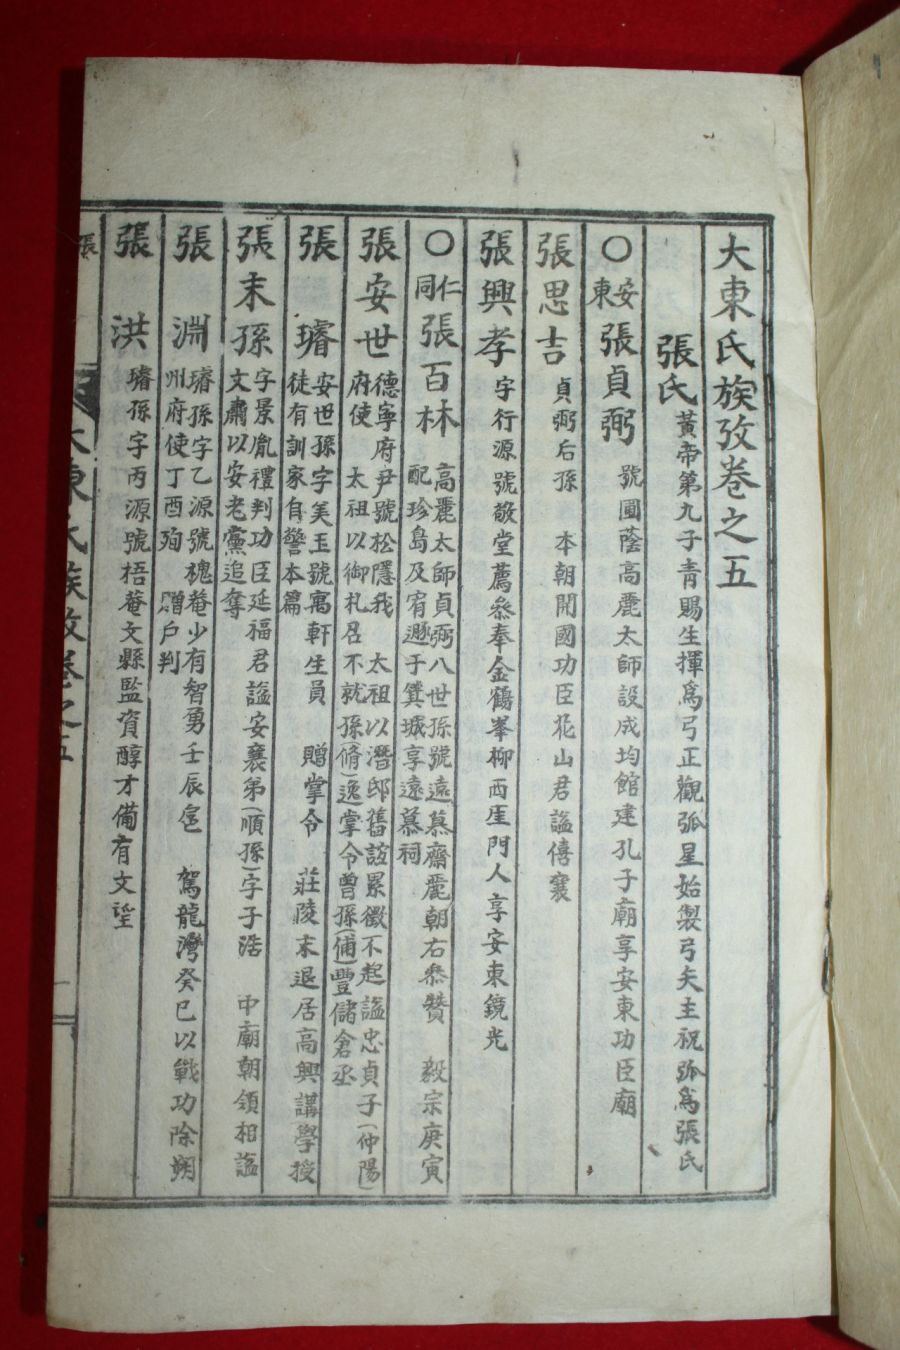 大東氏族攷卷之五
張氏 黃帝第九子青賜生揮爲弓正觀弧星始製弓矢主祝弧爲張氏
○安東 張貞弼 號圓蔭高麗太師設成均館建孔子廟享安東功臣廟
張思吉 貞弼后孫 本朝開國功臣花山君謚僖襄
張興孝 字行源號敬堂薦叅奉金鶴峯柳西厓門人享安東鏡光
○仁同 張百林 高麗太師貞弼八世孫號遠慕齋麗朝右叅贊 毅宗庚寅
配珍島及宥遯于 城享遠慕祠
張安世 德寧府尹號松隱我 太祖以潛邸舊誼累徵不起謚忠貞子(仲陽)
府使 太祖以御札召不就孫(脩)逸掌令曾孫(俌)豐儲倉丞
張 璿 安世孫字美玉號寓軒生員 贈掌令 莊陵末退居高興講學授
徒有訓家自警本篇
張末孫 字景胤禮判功臣延福君謚安襄弟(順孫)字子浩 中廟朝領相謚
文肅以安老黨追奪
張 淵 璿孫字乙源號 菴少有智勇壬辰扈 駕龍灣癸巳以戰功除朔
州府使丁酉殉 贈戶判
張 洪 璿孫字丙源號梧菴文縣監資醇才備有文望
張
大東氏族攷卷之五 一